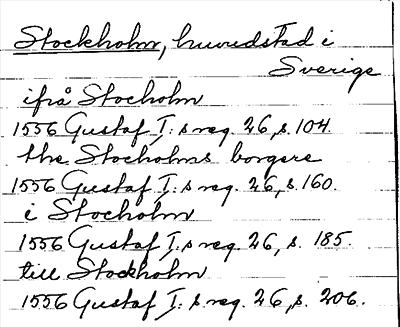 Stockholm, huvudstad i
Sverige
ifrå Stocholm
1556 Gustaf I:s reg. 26, s. 104.
the Stocholms borgere
1556 Gustaf I:s reg. 26, s. 160.
i Stocholm
1556 Gustaf I:s reg. 26, s. 185.
till Stockholm
1556 Gustaf I:s reg. 26, s. 206.